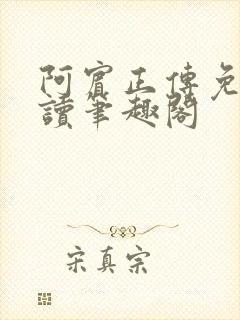 阿賓正傳免
讀筆趣閣
宋真宗